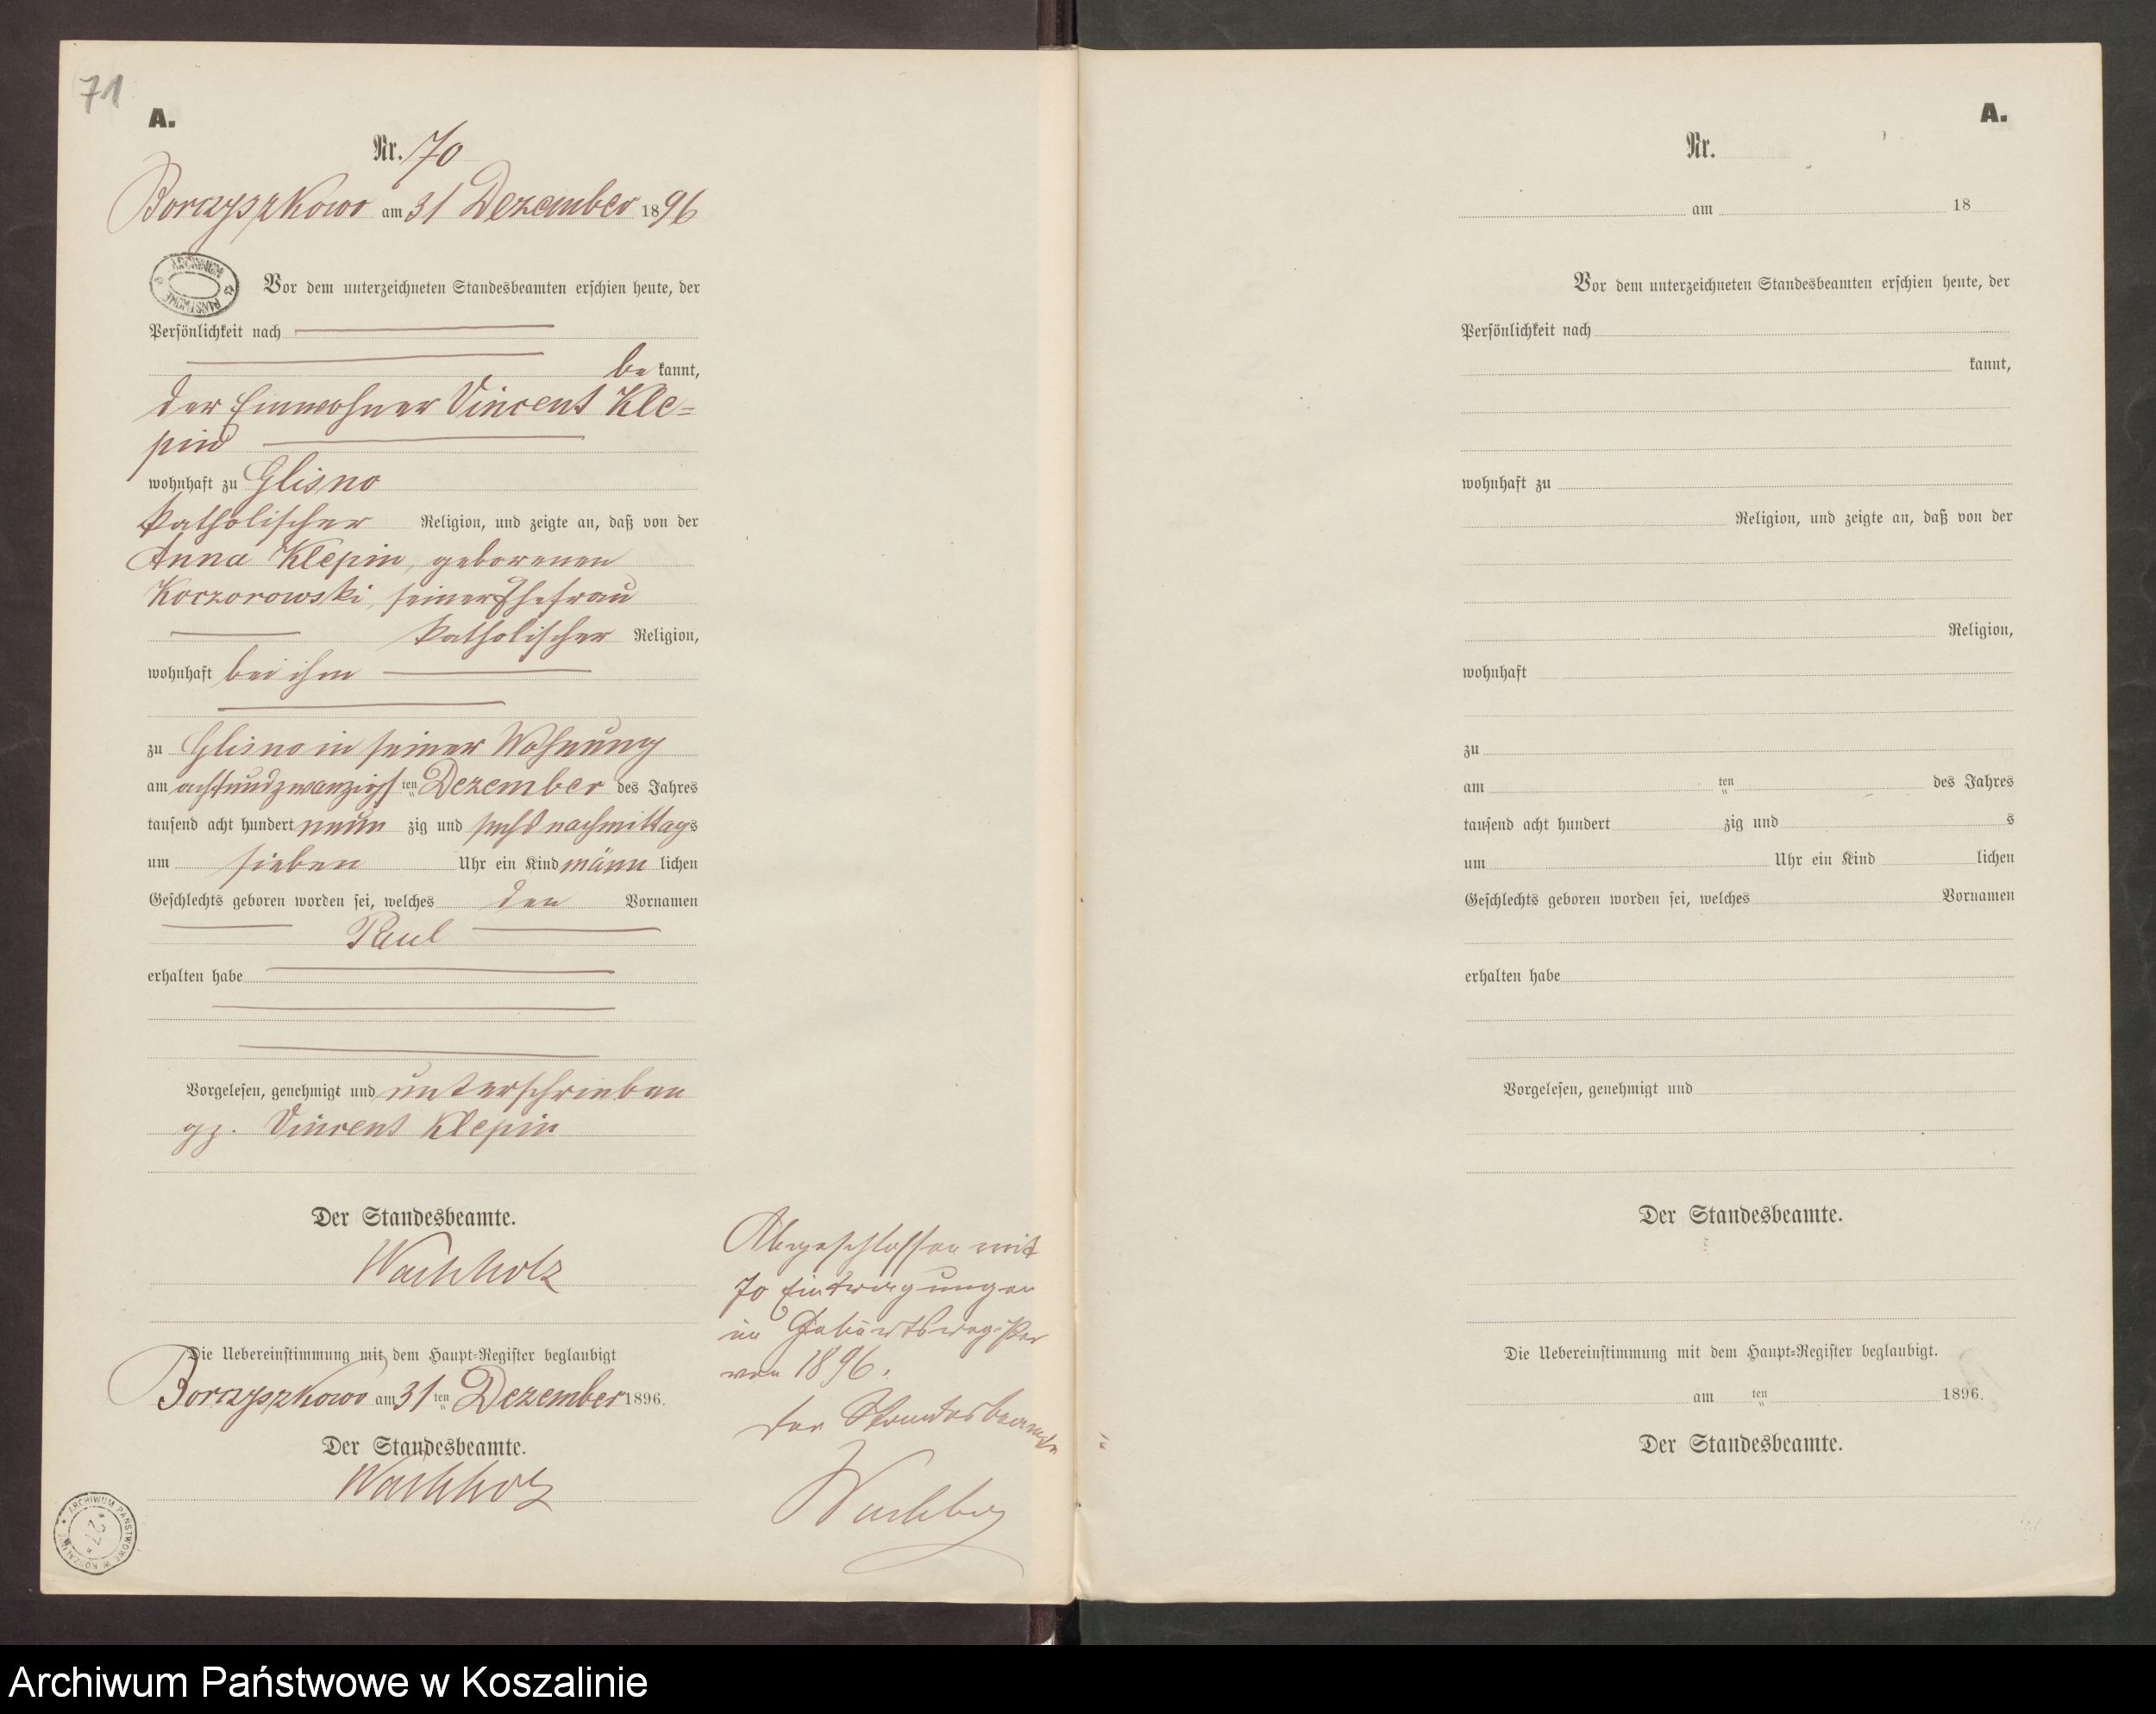 71
A.
Nr. 70
Borczyskowo am 31 Dezember 1896
ARCHIWUM PAŃSTWOWE
Vor dem unterzeichneten Standesbeamten erschien heute, der
Persönlichkeit nach
be kannt,
der Einwohner Vincent Kle=
pin
wohnhaft zu Glisno
katholischer Religion, und zeigte an, daß von der
Anna Klepin, geborenen
Koczorowski, seiner Ehefrau
katholischer Religion,
wohnhaft bei ihm
zu Glisno in seiner Wohnung
am achtundzwanzigsten Dezember des Jahres
tausend acht hundert neun zig und sechs nachmittags
um sieben Uhr ein Kind männ lichen
Geschlechts geboren worden sei, welches den Vornamen
Paul
erhalten habe
Vorgelesen, genehmigt und unterschrieben
gz. Vincent Klepin
Der Standesbeamte.
Wachholz
Die Uebereinstimmung mit dem Haupt=Register beglaubigt
Borczyskowo am 31 ten Dezember 1896.
Der Standesbeamte.
Wachholz
ARCHIWUM PAŃSTWOWE W KOSZALINIE
* 27 *
Abgeschlossen mit
70 Eintragungen
im Geburtsregister
von 1896.
Der Standesbeamte
Wachholz
A.
Nr.
am 18
Vor dem unterzeichneten Standesbeamten erschien heute, der
Persönlichkeit nach
kannt,
wohnhaft zu
Religion, und zeigte an, daß von der
Religion,
wohnhaft
zu
am ten des Jahres
tausend acht hundert zig und s
um Uhr ein Kind lichen
Geschlechts geboren worden sei, welches Vornamen
erhalten habe
Vorgelesen, genehmigt und
Der Standesbeamte.
Die Uebereinstimmung mit dem Haupt=Register beglaubigt.
am ten 1896.
Der Standesbeamte.
Archiwum Państwowe w Koszalinie